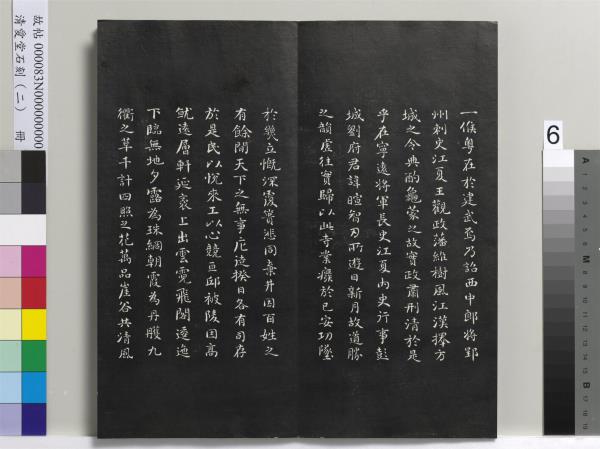 一候粵在於建武焉乃詔西中郎將郢
州刺史江夏王觀政藩維樹風江漢擇方
城之令典酌龜蒙之故實政肅刑清於是
乎在寧遠將軍長史江夏內史行事彭
城劉府君諱暄智刃所遊日新月故道勝
之韻虛往實歸以此寺業癈於已安功墜
於幾立慨深覆簣悲同棄井因百姓之
有餘閒天下之無事庀徒揆日各有司存
於是民以悅來工以心競亘邱被陵因高
就遠層軒延袤上出雲霓飛閣逶迤
下臨無地夕露為珠網朝霞為丹雘九
衢之草千計四照之花萬品崖谷共清風
故帖 000083N000000000
清愛堂石刻(二) 冊
6
A 1 2 3 4 5 6 M 8 9 10 11 12 13 14 15 B 17 18 19